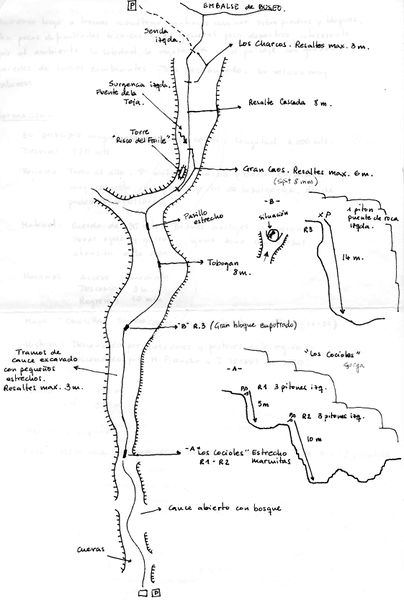 P
EMBALSE de BUSEO.
Senda
izqda.
Los Charcos. Resaltes max. 3m.
Surgencia izqda.
Fuente de la
Teja.
Resalte Cascada 8m.
Torre
"Risco del Fraile"
Gran Caos. Resaltes max. 6m.
(Spit 8mm)
Pasillo
estrecho
-B-
situación
R3
P
1 pitón
puente de roca
izqda.
14 m.
Tobogan
8m.
"B" R.3 (Gran bloque empotrado)
Tramos de
cauce excavado
con pequeños
estrechos.
Resaltes max. 3m.
-A-
"Los Cocioles"
R1 3 pitones izq.
5m
R2 3 pitones izq.
10 m
-A- "Los Cocioles" Estrecho
R1 - R2 marmitas
Cauce abierto con bosque
Cuevas
P